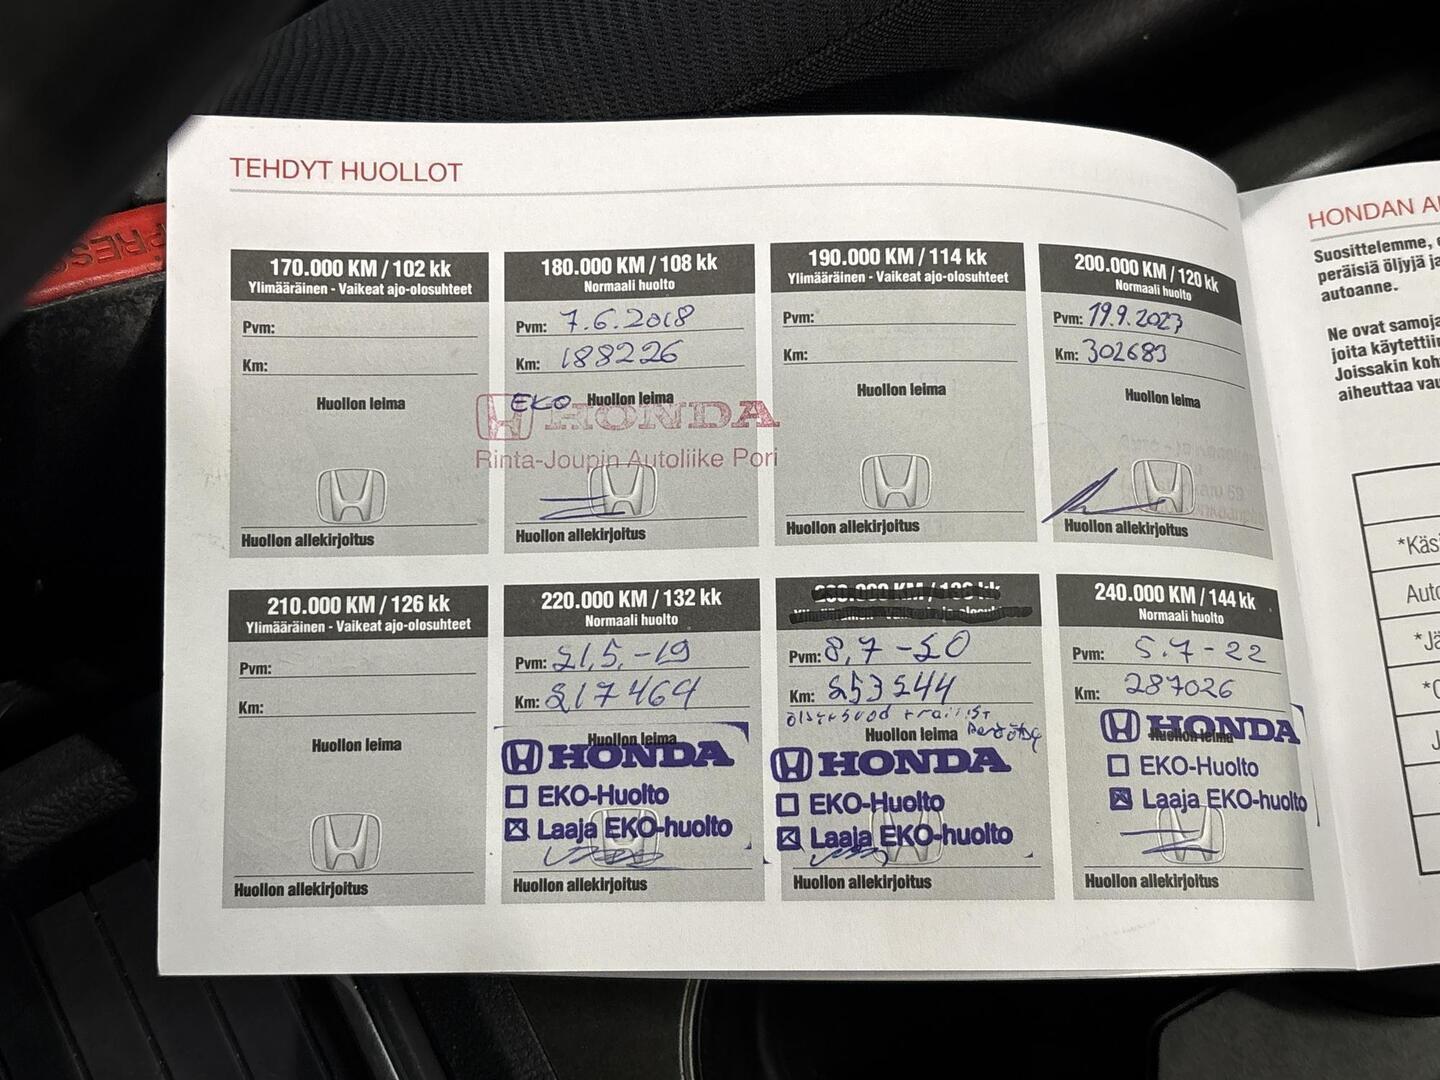 TEHDYT HUOLLOT
170.000 KM / 102 kk
Ylimääräinen - Vaikeat ajo-olosuhteet
Pvm:
Km:
Huollon leima
Huollon allekirjoitus
180.000 KM / 108 kk
Normaali huolto
Pvm: 7.6.2018
Km: 188226
EKO Huollon leima
HONDA
Rinta-Joupin Autoliike Pori
Huollon allekirjoitus
190.000 KM / 114 kk
Ylimääräinen - Vaikeat ajo-olosuhteet
Pvm:
Km:
Huollon leima
Huollon allekirjoitus
200.000 KM / 120 kk
Normaali huolto
Pvm: 19.9.2023
Km: 302683
Huollon leima
Huollon allekirjoitus
210.000 KM / 126 kk
Ylimääräinen - Vaikeat ajo-olosuhteet
Pvm:
Km:
Huollon leima
Huollon allekirjoitus
220.000 KM / 132 kk
Normaali huolto
Pvm: 21,5,-19
Km: 217464
Huollon leima
HONDA
EKO-Huolto
Laaja EKO-huolto
Huollon allekirjoitus
Pvm: 8,7-20
Km: 253244
Huollon leima
HONDA
EKO-Huolto
Laaja EKO-huolto
Huollon allekirjoitus
240.000 KM / 144 kk
Normaali huolto
Pvm: 5.7-22
Km: 287026
Huollon leima
HONDA
EKO-Huolto
Laaja EKO-huolto
Huollon allekirjoitus
HONDAN
Suosittelemme,
peräisiä öljyjä
autoanne.
Ne ovat
joita
Joissakin
aiheuttaa